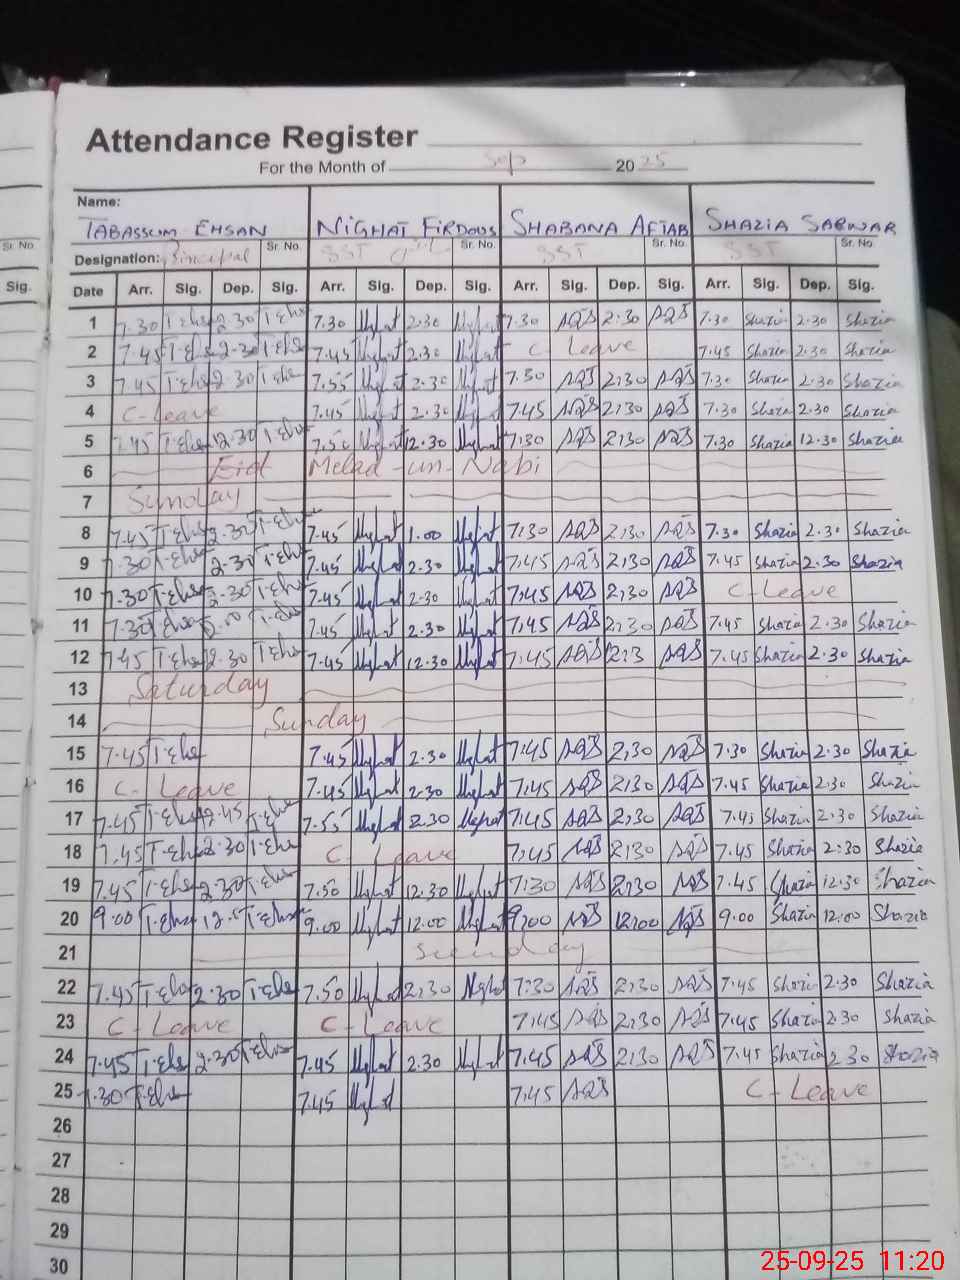 Attendance Register
For the Month of Sep 2025
Name:
TABASSUM EHSAN NIGHAT FIRDOUS SHABANA AFTAB SHAZIA SARWAR
Sr. No. Sr. No. Sr. No. Sr. No. Sr. No.
Designation: Principal SST SST SST
Sig. Date Arr. Sig. Dep. Sig. Arr. Sig. Dep. Sig. Arr. Sig. Dep. Sig. Arr. Sig. Dep. Sig.
1 7.30 T-Ehs 2.30 T-Ehs 7.30 Nighat 2.30 Nighat 7.30 AQS 2:30 AQS 7.30 Shazia 2.30 Shazia
2 7.45 T-Ehs 2.30 T-Ehs 7.45 Nighat 2.30 Nighat C- Leave 7.45 Shazia 2.30 Shazia
3 7.45 T-Ehs 2.30 T-Ehs 7.55 Nighat 2.30 Nighat 7.30 AQS 2:30 AQS 7.30 Shazia 2.30 Shazia
4 C-Leave 7.45 Nighat 2.30 Nighat 7.45 AQS 2:30 AQS 7.30 Shazia 2.30 Shazia
5 7.45 T-Ehs 12.30 T-Ehs 7.50 Nighat 12.30 Nighat 7:30 AQS 2:30 AQS 7.30 Shazia 12.30 Shazia
6 Eid Melad-un-Nabi
7 Sunday
8 7.45 T-Ehs 2.30 T-Ehs 7.45 Nighat 1.00 Nighat 7:30 AQS 2:30 AQS 7.30 Shazia 2.30 Shazia
9 7.30 T-Ehs 2.30 T-Ehs 7.45 Nighat 2.30 Nighat 7:45 AQS 2:30 AQS 7.45 Shazia 2.30 Shazia
10 7.30 T-Ehs 2.30 T-Ehs 7.45 Nighat 2.30 Nighat 7:45 AQS 2:30 AQS C-Leave
11 7.30 T-Ehs T-Ehs 7.45 Nighat 2.30 Nighat 7:45 AQS 2:30 AQS 7.45 Shazia 2.30 Shazia
12 7.45 T-Ehs 12.30 T-Ehs 7.45 Nighat 12.30 Nighat 7:45 AQS 2:3 AQS 7.45 Shazia 2.30 Shazia
13 Saturday
14 Sunday
15 7.45 T-Ehs 7.45 Nighat 2.30 Nighat 7:45 AQS 2:30 AQS 7.30 Shazia 2.30 Shazia
16 C- Leave 7.45 Nighat 2.30 Nighat 7:45 AQS 2:30 AQS 7.45 Shazia 2.30 Shazia
17 7.45 T-Ehs 12.45 T-Ehs 7.55 Nighat 2.30 Nighat 7:45 AQS 2:30 AQS 7.45 Shazia 2.30 Shazia
18 7.45 T-Ehs 2.30 T-Ehs C- Leave 7:45 AQS 2:30 AQS 7.45 Shazia 2:30 Shazia
19 7.45 T-Ehs 2.30 T-Ehs 7.50 Nighat 12.30 Nighat 7:30 AQS 2:30 AQS 7.45 Shazia 12.30 Shazia
20 9.00 T-Ehs T-Ehs 9.00 Nighat 12.00 Nighat 9:00 AQS 12:00 AQS 9.00 Shazia 12:00 Shazia
21 Sunday
22 7.45 T-Ehs 2.30 T-Ehs 7.50 Nighat 2:30 Nighat 7:30 AQS 2:30 AQS 7.45 Shazia 2.30 Shazia
23 C-Leave C-Leave 7:45 AQS 2:30 AQS 7.45 Shazia 2.30 Shazia
24 7.45 T-Ehs 2.30 T-Ehs 7.45 Nighat 2.30 Nighat 7:45 AQS 2:30 AQS 7.45 Shazia 2.30 Shazia
25 7.30 T-Ehs 7.45 Nighat 7:45 AQS C- Leave
26
27
28
29
30
25-09-25 11:20